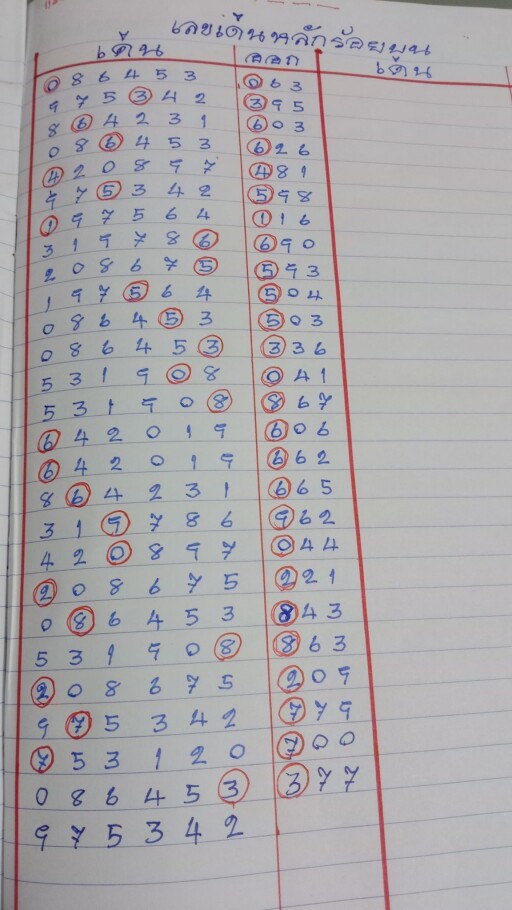 เลขเด่นหลักร้อยบน
เด่น ออก เด่น
0 8 6 4 5 3 0 6 3
9 7 5 3 4 2 3 9 5
8 6 4 2 3 1 6 0 3
0 8 6 4 5 3 6 2 6
4 2 0 8 9 7 4 8 1
9 7 5 3 4 2 5 9 8
1 9 7 5 6 4 1 1 6
3 1 9 7 8 6 6 9 0
2 0 8 6 7 5 5 9 3
1 9 7 5 6 4 5 0 4
0 8 6 4 5 3 5 0 3
0 8 6 4 5 3 3 3 6
5 3 1 9 0 8 0 4 1
5 3 1 9 0 8 8 6 7
6 4 2 0 1 9 6 0 6
6 4 2 0 1 9 6 6 2
8 6 4 2 3 1 6 6 5
3 1 9 7 8 6 9 6 2
4 2 0 8 9 7 0 4 4
2 0 8 6 7 5 2 2 1
0 8 6 4 5 3 8 4 3
5 3 1 9 0 8 8 6 3
2 0 8 6 7 5 2 0 9
9 7 5 3 4 2 7 7 9
7 5 3 1 2 0 7 0 0
0 8 6 4 5 3 3 7 7
9 7 5 3 4 2